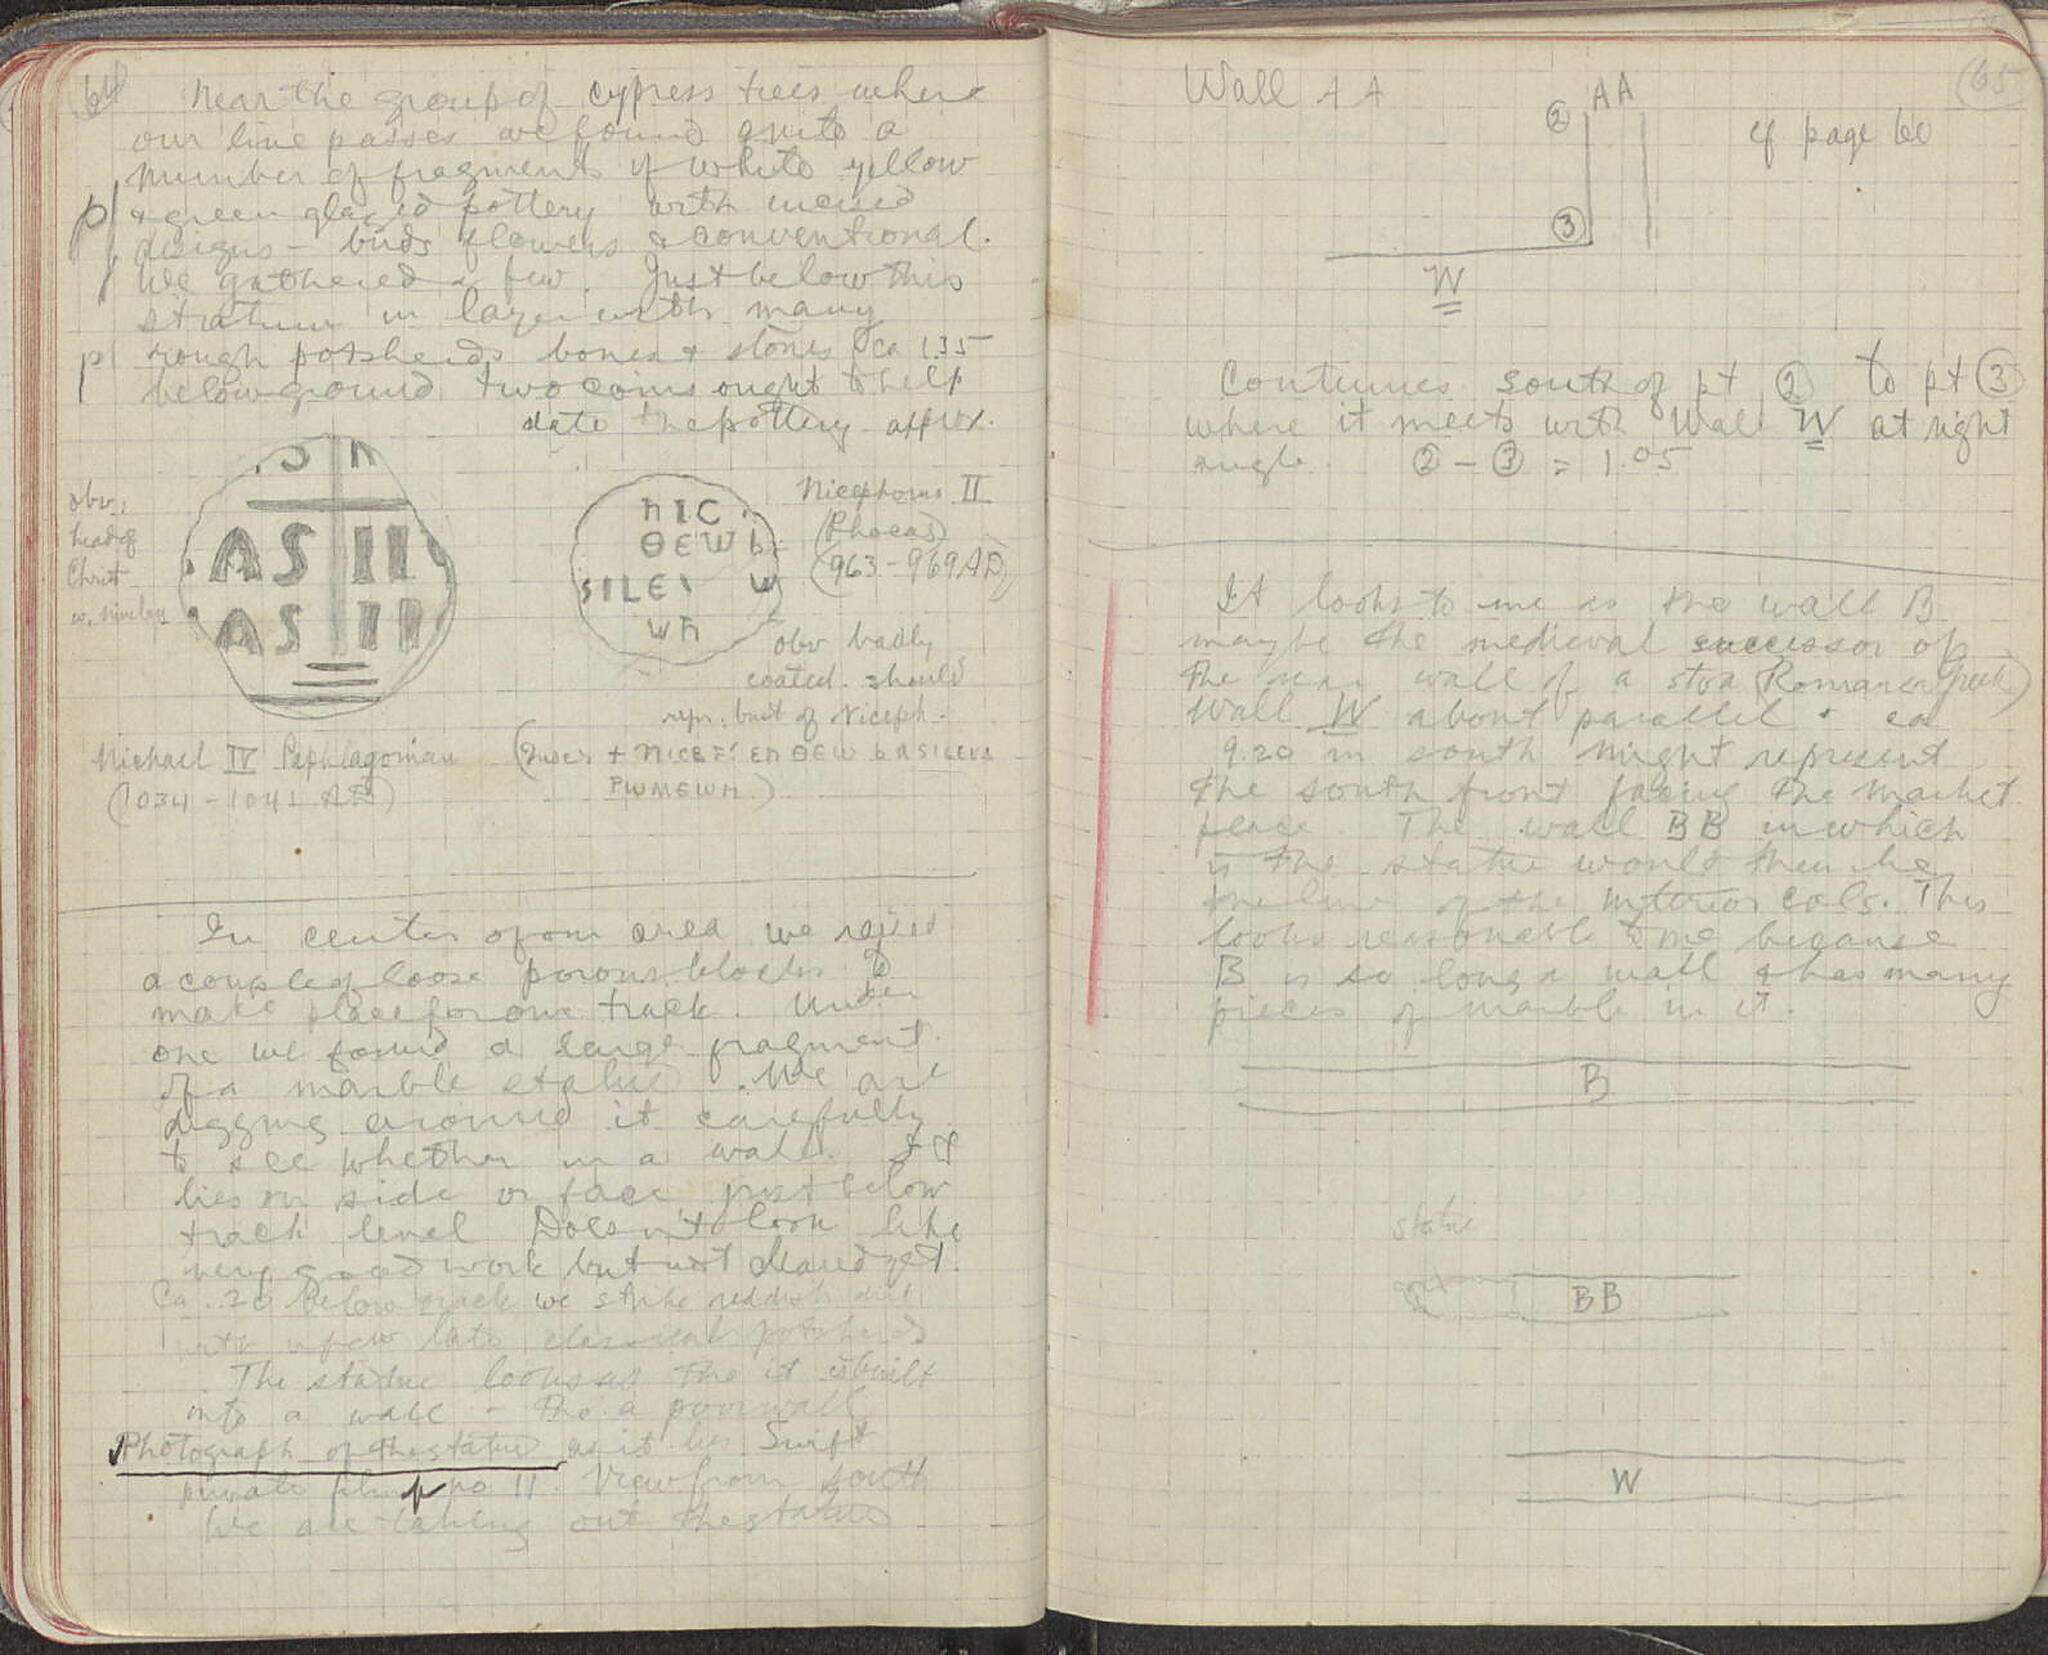 64
Near the group of cypress trees where
our line passes we found quite a
number of fragments of white yellow
& green glazed pottery with incised
designs - birds flowers & conventional.
We gathered a few. Just below this
stratum in layer with many
rough potsherds bones & stones (ca 1.35
below ground two coins ought to help
date the pottery approx.
obv.
head of
Christ
w. nimbus
AS II
AS II
Michael IV Paphlagonian
(1034 - 1041 AD)
NIC
ΘEW b
SILE W
WN
Nicephorus II
(Phocas)
(963 - 969 AD)
obv badly
coated. should
repr. bust of Niceph.
EN ΘEW bASILEVS
PWMEWN.)
In center of our area we raised
a couple of loose porous blocks to
make place for our track. Under
one we found a large fragment
of a marble statue. We are
digging around it carefully
to see whether in a wall. It
lies on side or face just below
track level Doesn't look like
very good work but not cleaned yet.
Ca .20 below track we strike reddish dirt
with a few late classical potsherds
The statue looks as tho it is built
into a wall - tho a poor wall
Photograph of the statue as it lies Swift
private film no 11. View from south
We are taking out the statue
65
Wall AA
② AA
cf page 60
③
W
Continues south of pt ② to pt ③
where it meets with Wall W at right
angle. ② - ③ = 1.05
It looks to me as the wall B
may be the medieval successor of
the rear wall of a stoa (Roman or Greek)
Wall W about parallel & ca
9.20 m south might represent
the south front facing the market
place. The wall BB in which
is the statue would then be
the line of the interior cols. This
looks reasonable to me because
B is so long a wall & has many
pieces of marble in it.
B
statue
BB
W